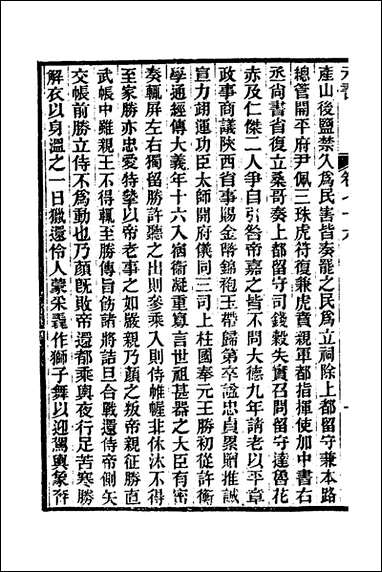 產山後鹽禁久爲民害皆奏罷之民爲立祠除上都留守兼本路
總管開平府尹佩三珠虎符復兼虎賁親軍都指揮使加中書右
丞尚書省復立桑哥奏上都留守司錢穀失實召問留守達魯花
赤及仁傑二人爭自引咎帝嘉之皆不問大德九年請老以平章
政事商議陝西省事賜金幣錦袍玉帶歸第卒諡忠貞累贈推誠
宣力翊運功臣太師開府儀同三司上柱國奉元王勝初從許衡
學通經傳大義年十六入宿衞凝重寡言世祖甚器之大臣有密
奏輒屏左右獨留勝許聽之出則參乘入則侍帷幄非休沐不得
至家勝亦忠愛特摯以帝老事之如嚴親乃顏之叛帝親征勝直
武帳中雖親王不得輒至勝傳旨飭諸將詰旦合戰還侍帝側矢
交帳前勝立侍不爲動也乃顏既敗帝還都乘輿夜行足苦寒勝
解衣以身溫之一日獵還伶人蒙采毳作獅子舞以迎駕輿象奔